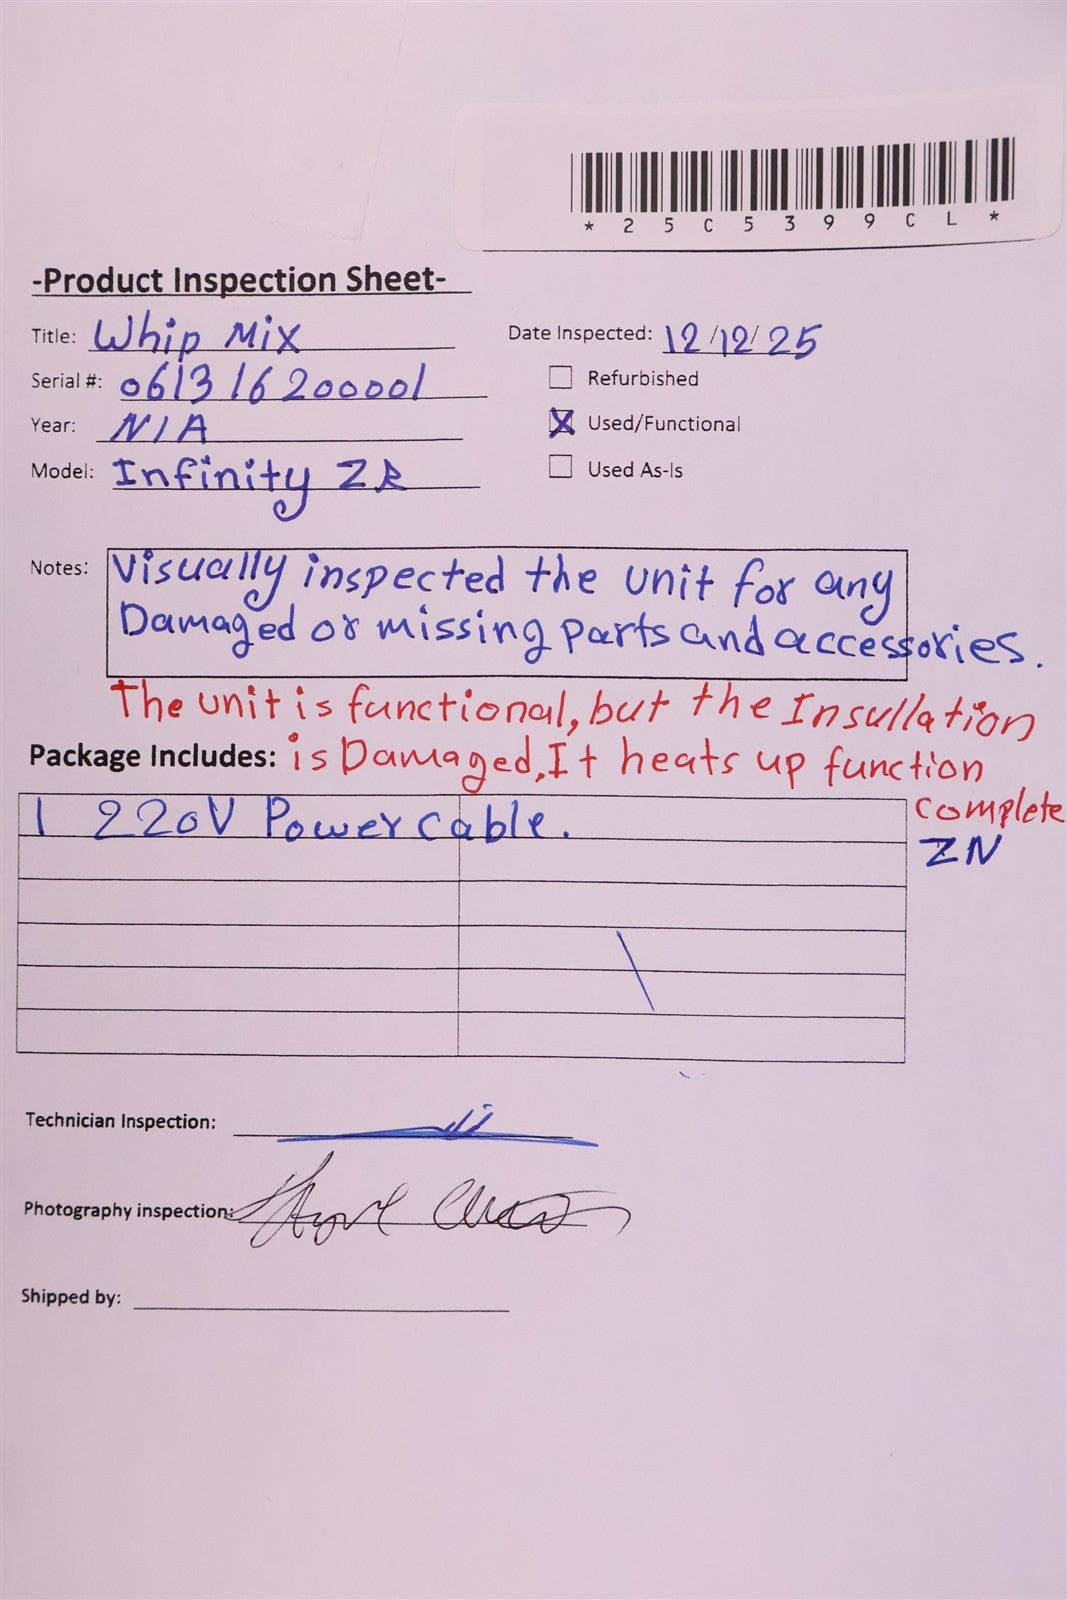 *25C5399CL*
-Product Inspection Sheet-
Title: Whip Mix
Date Inspected: 12/12/25
Serial #: 061316200001
Refurbished
Year: N/A
X Used/Functional
Model: Infinity ZR
Used As-Is
Notes: Visually inspected the unit for any
Damaged or missing parts and accessories.
The unit is functional, but the Insullation
Package Includes: is Damaged, It heats up function
complete
1 220V Power cable.
ZN
Technician Inspection:
Photography inspection:
Shipped by: